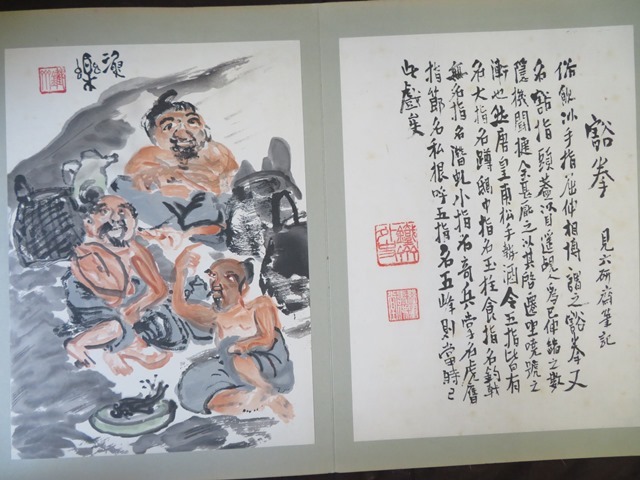 漁樂
豁拳 見六研齋筆記
俗飲以手指屈伸相搏謂之豁拳又
名豁指頭蓋以目遙覘人為己伸縮之數
隱機鬪捷余甚厭之以其啓遝坐喧號之
漸也然唐皇甫松手勢酒令五指皆有
名大指名蹲鴟中指名玉柱食指名鈎戟
無名指名潛虬小指名奇兵掌名虎膺
指節名私根呼五指名五峰則當時已
此戲矣